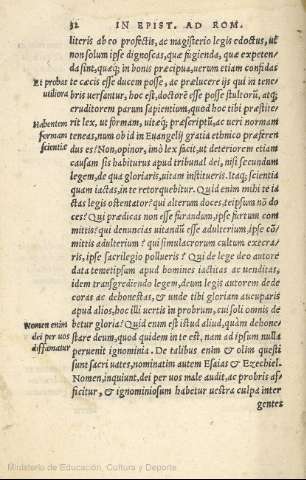 32 IN EPIST. AD ROM.
literis ab eo profectis, ac magisterio legis edoctus, ut
non solum ipse dignoscas, quæ fugienda, quæ expeten
da sint, quæq; in bonis præcipua, uerum etiam confidas
Et probas te cæcis esse ducem posse, ac prælucere ijs qui in tene
utiliora bris uersantur, hoc est, doctorē esse posse stultorū, atq;
eruditorem parum sapientium, quod hoc tibi præstite
Habentem rit lex, ut formam, uitæq; præscriptū, ac ueri normam
formam teneas, num ob id in Euangelij gratia ethnico præferen
scientiæ dus es? Non, opinor, imò lex facit, ut deteriorem etiam
causam sis habiturus apud tribunal dei, nisi secundum
legem, de qua gloriaris, uitam institueris. Itaq; scientia
quam iactas, in te retorquebitur. Quid enim mihi te ia
ctas legis ostentator? qui alterum doces, teipsum nō do
ces? Qui prædicas non esse furandum, ipse furtum com
mittis? qui denuncias uitandū esse adulterium, ipse cō/
mittis adulterium? qui simulacrorum cultum execra/
ris, ipse sacrilegio pollueris? Qui de lege deo autore
data temetipsum apud homines iactitas ac uenditas,
idem transgrediendo legem, deum legis autorem dede
coras ac dehonestas, & unde tibi gloriam aucuparis
apud alios, hoc illi uertis in probrum, cui soli omnis de
Nomen enim betur gloria? Quid enim est istud aliud, quàm dehone
dei per uos stare deum, quod quidem in te est, nam ad ipsum nulla
diffamatur peruenit ignominia. De talibus enim & olim questi
sunt sacri uates, nominatim autem Esaias & Ezechiel.
Nomen, inquiunt, dei per uos male audit, ac probris af
ficitur, & ignominiosum habetur uestra culpa inter
gentes
Ministerio de Educación, Cultura y Deporte